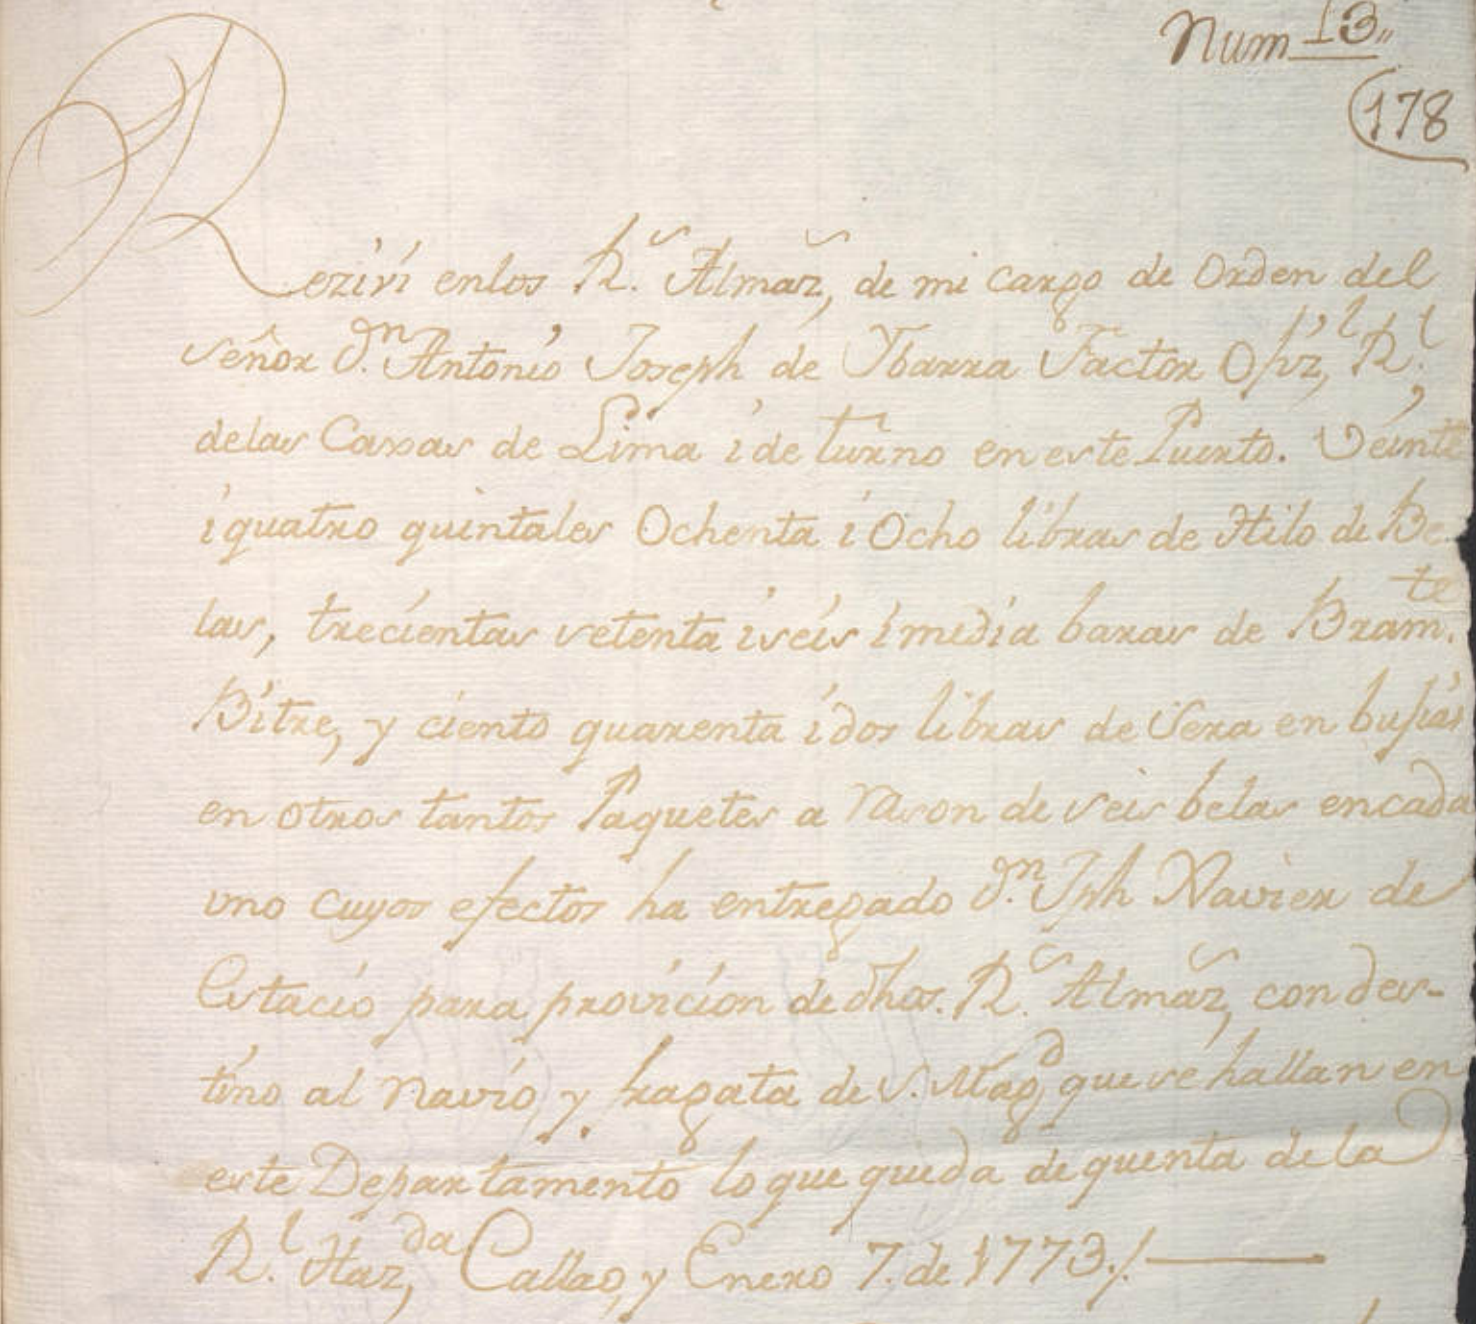 Num 13,,
178
Reziví enlos R.s Almaz,s de mi cargo de Orden del
señor Dn. Antonio Joseph de Ybarra Factor Ofiz,l R.l
delas Caxas de Lima i de turno en este Puerto. Veinte
i quatro quintales Ochenta i Ocho libras de Hilo de Be
las, trecientas setenta i seis i media baras de Bram.te
Bitre, y ciento quarenta i dos libras de Sera en bujías
en otros tantos Paquetes a rason de seis belas encada
uno cuyos efectos ha entregado Dn. Jph Xavier de
Estacio para provicion de dhos. R.s Almaz,s con des-
tino al Navio, y fragata de S. Mag,d que se hallan en
este Departamento lo que queda de quenta de la
R.l Haz,da Callao, y Enero 7. de 1773./.